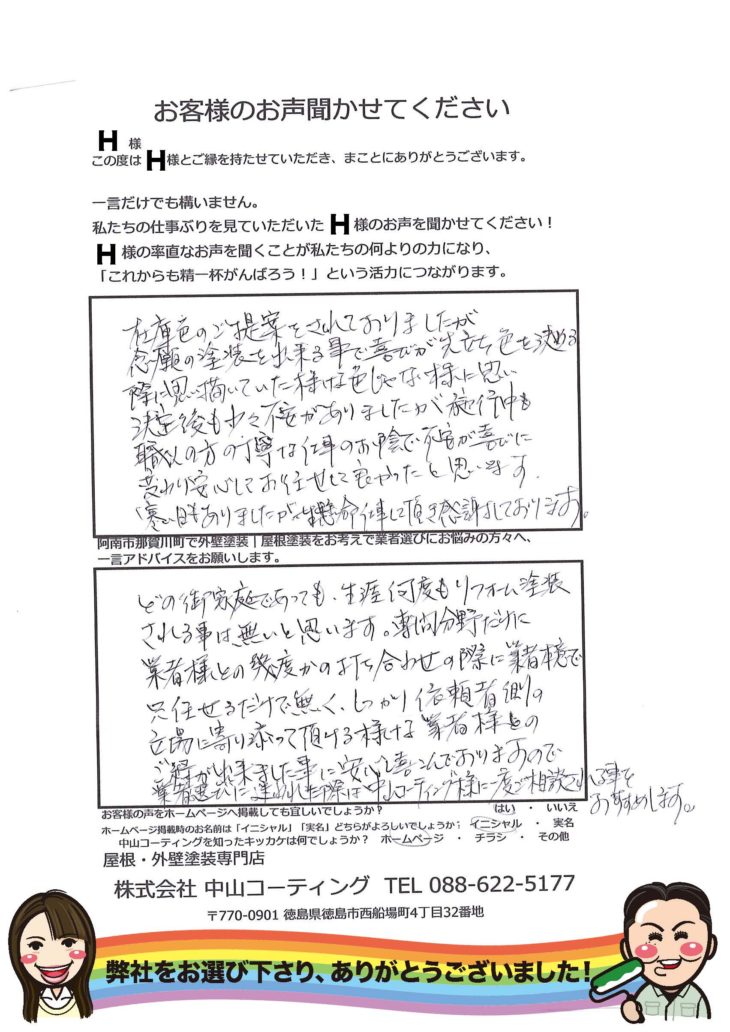 お客様のお声聞かせてください
H 様
この度は H 様とご縁を持たせていただき、まことにありがとうございます。
一言だけでも構いません。
私たちの仕事ぶりを見ていただいた H 様のお声を聞かせてください！
H 様の率直なお声を聞くことが私たちの何よりの力になり、
「これからも精一杯がんばろう！」という活力につながります。
在庫色のご提案をされておりましたが
念願の塗装を出来る事で喜びが先立ち色を決める
際に思い描いていた様な色じゃない様に思い
決定後も少々不安がありましたが施行中も
職人の方の丁寧な仕事のお陰で不安が喜びに
変わり安心してお任せして良かったと思います.
寒い日もありましたが一生懸命仕事して頂き感謝しております。
阿南市那賀川町で外壁塗装｜屋根塗装をお考えで業者選びにお悩みの方々へ、
一言アドバイスをお願いします。
どの御家庭であっても、生涯何度もリフォーム塗装
される事は無いと思います。専門分野だけに
業者様との幾度かの打ち合わせの際に業者様で
只任せるだけで無く、しっかり依頼者側の
立場に寄り添って頂ける様な業者様との
ご縁が出来ました事に安心と喜こんでおりますので
業者選びに迷われた際は中山コーティング様に一度ご相談される事を
おすすめします。
お客様の声をホームページへ掲載しても宜しいでしょうか？ はい ・ いいえ
ホームページ掲載時のお名前は「イニシャル」「実名」どちらがよろしいでしょうか； イニシャル ・ 実名
中山コーティングを知ったキッカケは何でしょうか？ ホームページ ・ チラシ ・ その他
屋根・外壁塗装専門店
株式会社 中山コーティング TEL 088-622-5177
〒770-0901 徳島県徳島市西船場町4丁目32番地
弊社をお選び下さり、ありがとうございました！